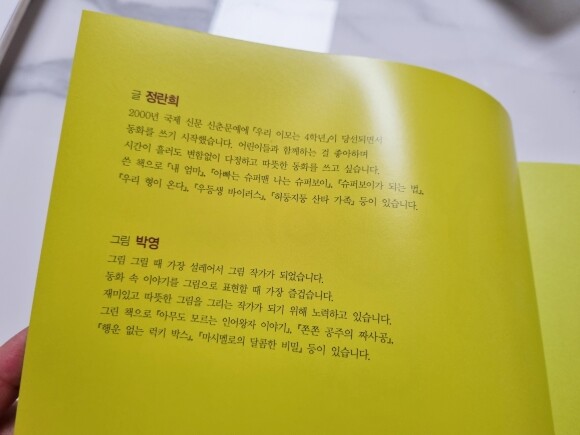 글 정란희
2000년 국제 신문 신춘문예에 『우리 이모는 4학년』이 당선되면서
동화를 쓰기 시작했습니다. 어린이들과 함께하는 걸 좋아하며
시간이 흘러도 변함없이 다정하고 따뜻한 동화를 쓰고 싶습니다.
쓴 책으로 『내 엄마』, 『아빠는 슈퍼맨 나는 슈퍼보이』, 『슈퍼보이가 되는 법』,
『우리 형이 온다』, 『우등생 바이러스』, 『허둥지둥 산타 가족』 등이 있습니다.
그림 박영
그림 그릴 때 가장 설레어서 그림 작가가 되었습니다.
동화 속 이야기를 그림으로 표현할 때 가장 즐겁습니다.
재미있고 따뜻한 그림을 그리는 작가가 되기 위해 노력하고 있습니다.
그린 책으로 『아무도 모르는 인어왕자 이야기』, 『쫀쫀 공주의 짜사공』,
『행운 없는 럭키 박스』, 『마시멜로의 달콤한 비밀』 등이 있습니다.